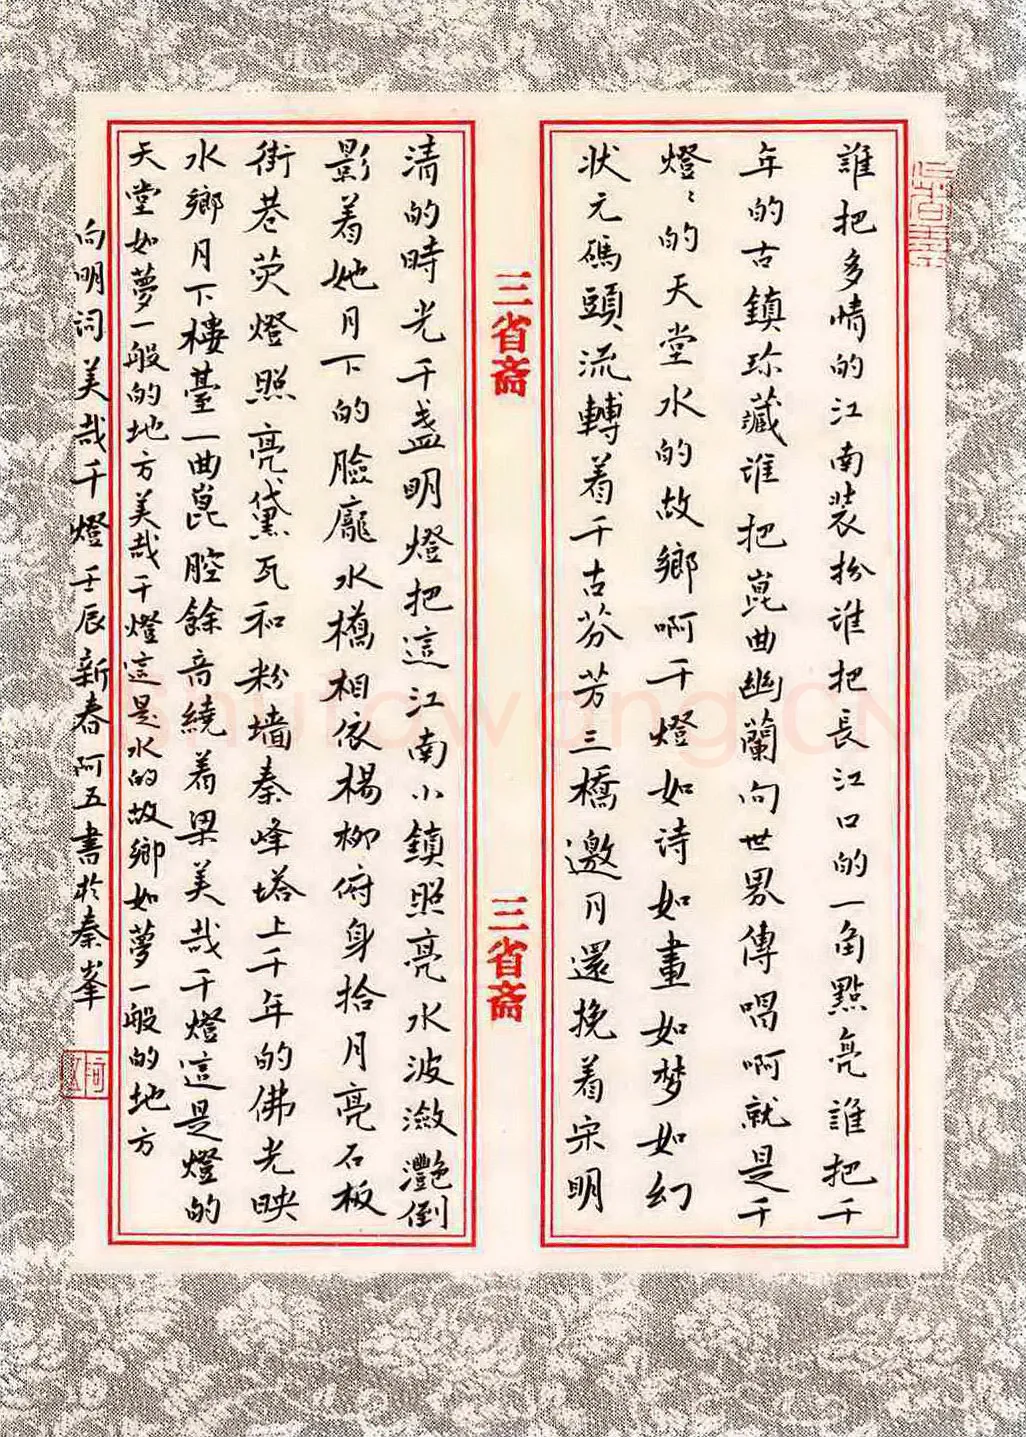 誰把多情的江南装扮谁把長江口的一角點亮誰把千
年的古鎮珎藏谁把崑曲幽蘭向世界傳唱啊就是千
燈〻的天堂水的故鄉啊千燈如诗如畫如梦如幻
状元碼頭流轉着千古芬芳三橋邀月還挽着宋明
三省斋
三省斋
清的時光千盏明燈把這江南小鎮照亮水波潋灔倒
影着她月下的臉龐水橋相依楊柳俯身拾月亮石板
街巷荧燈照亮黛瓦和粉墙秦峰塔上千年的佛光映
水鄉月下樓臺一曲崑腔餘音繞着梁美哉千燈這是燈的
天堂如夢一般的地方美哉千燈這是水的故鄉如夢一般的地方
向明词美哉千燈壬辰新春阿五書於秦峯
shufawang.CN